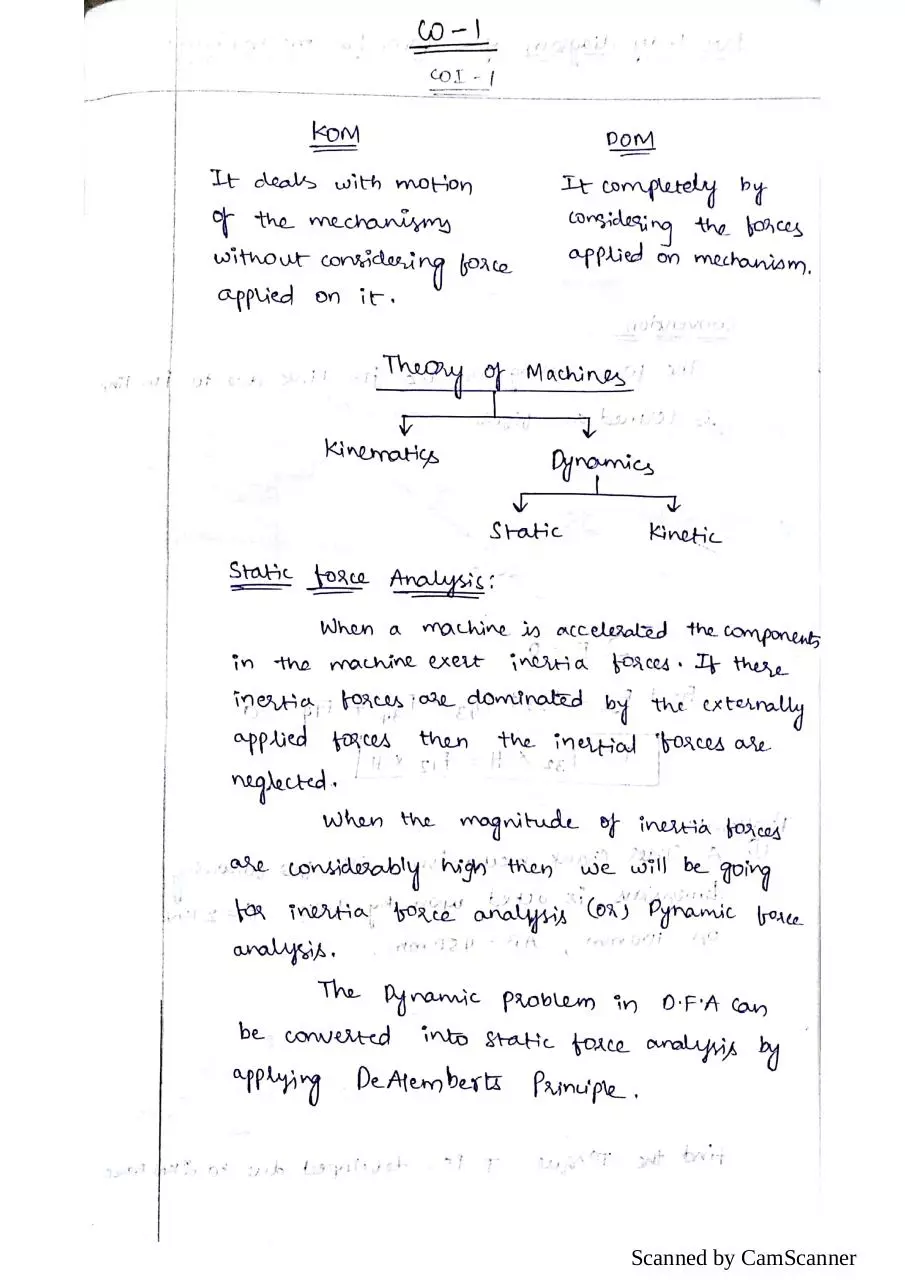 CO-1
COI-1
KOM
DOM
It deals with motion
of the mechanisms
without considering force
applied on it.
It completely by
considering the forces
applied on mechanism.
Theory of Machines
Kinematics
Dynamics
Static
Kinetic
Static force Analysis:
When a machine is accelerated the components
in the machine exert inertia forces. If there
inertia forces are dominated by the externally
applied forces then the inertial forces are
neglected.
When the magnitude of inertia forces
are considerably high then we will be going
for inertia force analysis (or) Dynamic force
analysis.
The Dynamic problem in D.F.A can
be converted into static force analysis by
applying DeAlemberts Principle.
Scanned by CamScanner